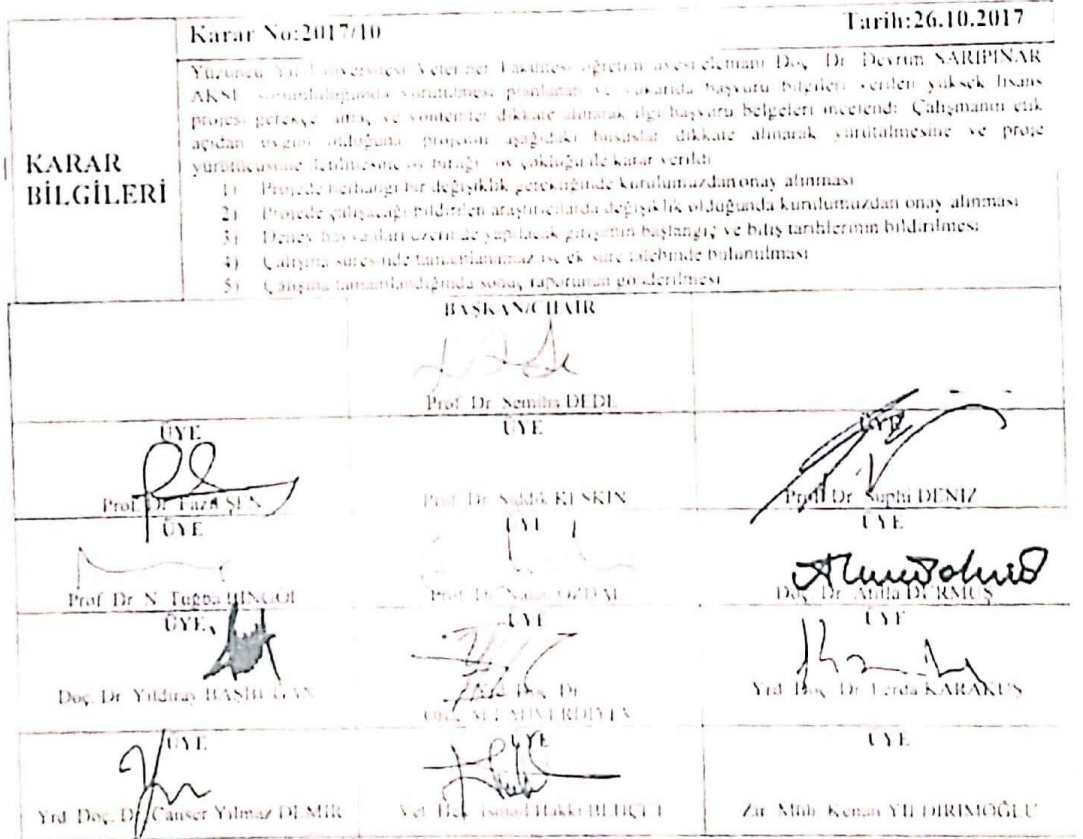 Karar No:2017/10
Tarih:26.10.2017
KARAR
BİLGİLERİ
Yüzüncü Yıl Üniversitesi Veteriner Fakültesi öğretim üyesi/elemanı Doç. Dr. Devrim SARIPINAR
AKSU sorumluluğunda yürütülmesi planlanan ve yukarıda başvuru bilgileri verilen yüksek lisans
projesi gerekçe, amaç ve yöntemler dikkate alınarak ilgi başvuru belgeleri incelendi. Çalışmanın etik
açıdan uygun olduğuna, projenin aşağıdaki hususlar dikkate alınarak yürütülmesine ve proje
yürütücüsüne iletilmesine oy birliği / oy çokluğu ile karar verildi
1) Projede herhangi bir değişiklik gerektiğinde kurulumuzdan onay alınması
2) Projede çalışacağı bildirilen araştırıcılarda değişiklik olduğunda kurulumuzdan onay alınması
3) Deney hayvanları üzerinde yapılacak girişimin başlangıç ve bitiş tarihlerinin bildirilmesi
4) Çalışma süresinde tamamlanamaz ise, ek süre talebinde bulunulması
5) Çalışma tamamlandığında sonuç raporunun gönderilmesi
BAŞKAN/CHAIR
Prof. Dr. Semiha DEDE
ÜYE
ÜYE
ÜYE
Prof. Dr. Fazıl ŞEN
Prof. Dr. Sıddık KESKİN
Prof. Dr. Suphi DENİZ
ÜYE
ÜYE
ÜYE
Prof. Dr. N. Tuğba BİNGÖL
Prof. Dr. ÖZDAL
Doç. Dr. Atilla DURMUŞ
ÜYE
ÜYE
ÜYE
Doç. Dr. Yıldıray BAŞBUĞAN
Yrd. Doç. Dr.
Yrd. Doç. Dr. Ferda KARAKUŞ
ÜYE
ÜYE
ÜYE
Yrd. Doç. Dr. Canser Yılmaz DEMİR
Vet. Hek. İsmail Hakkı BEHÇET
Zir. Müh. Kenan YILDIRIMOĞLU